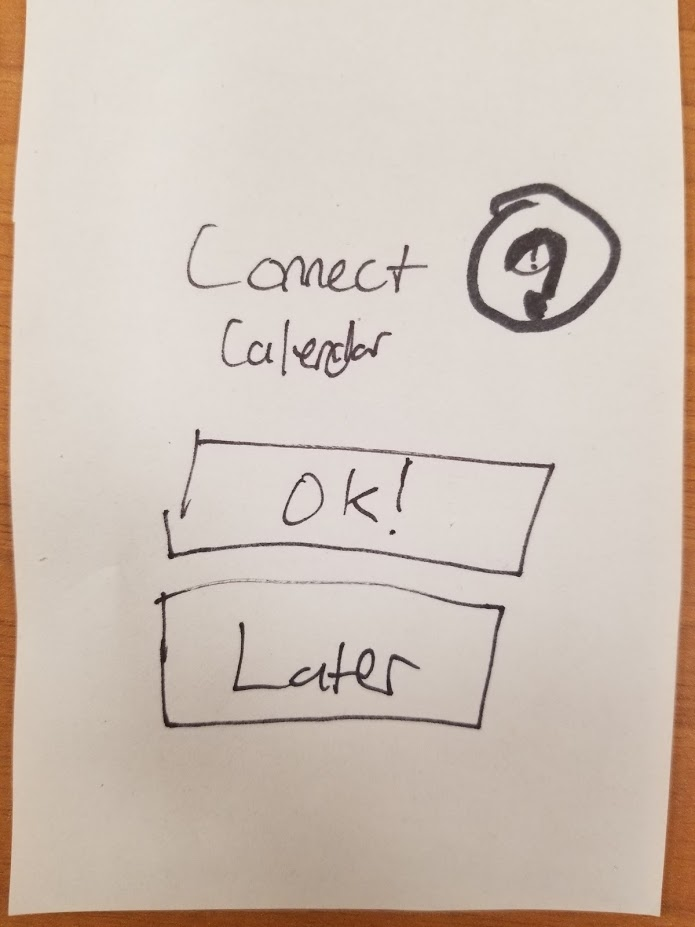 Connect ?
Calendar
Ok!
Later